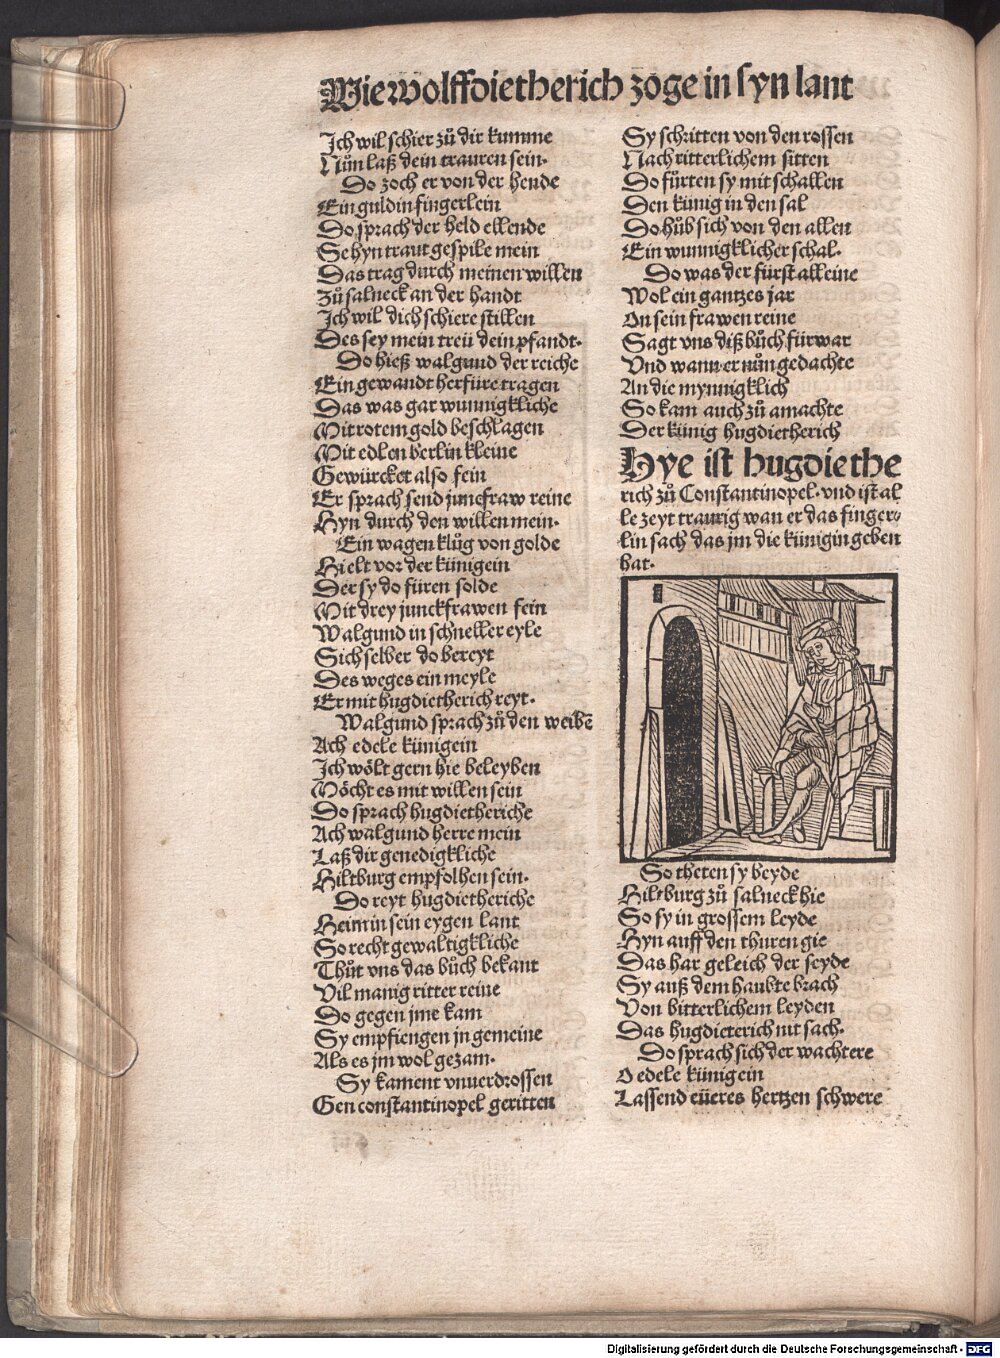 Wie wolffdietherich zoge in syn lant
Ich wil schier zů dir kumme
Nůn laß dein trauren sein·
Do zoch er von der hende
Ein guldin fingerlein
Do sprach der held ellende
Se hyn traut gespile mein
Das trag durch meinen willen
Zů salneck an der handt
Ich wil dich schiere stillen
Des sey mein treü dein pfandt·
Do hieß walgund der reiche
Ein gewandt herfüre tragen
Das was gar wunnigkliche
Mit rotem gold beschlagen
Mit edlen berlin kleine
Gewürcket also fein
Er sprach send juncfraw reine
Hyn durch den willen mein·
Ein wagen klůg von golde
Hielt vor der künigein
Der sy do füren solde
Mit drey junckfrawen fein
Walgund in schneller eyle
Sich selber do bereyt
Des weges ein meyle
Er mit hugdietherich reyt·
Walgund sprach zů den weibē
Ach edele künigein
Ich wölt gern hie beleyben
Möcht es mit willen sein
Do sprach hugdietheriche
Ach walgund herre mein
Laß dir genedigkliche
Hiltburg empfolhen sein·
Do reyt hugdietheriche
Heim in sein eygen lant
So recht gewaltigkliche
Thůt vns das bůch bekant
Vil manig ritter reine
Do gegen jme kam
Sy empfiengen jn gemeine
Als es jm wol gezam·
Sy kament vnuerdrossen
Gen constantinopel geritten
Sy schritten von den rossen
Nach ritterlichem sitten
Do fürten sy mit schallen
Den künig in den sal
Do hůb sich von den allen
Ein wunnigklicher schal·
Do was der fürst alleine
Wol ein gantzes jar
On sein frawen reine
Sagt vns diß bůch fürwar
Vnd wann er nůn gedachte
An die mynnigklich
So kam auch zů amachte
Der künig hugdietherich
Hye ist hugdiethe
rich zů Constantinopel· vnd ist al
le zeyt traurig wan er das finger⸗
lin sach das jm die künigin geben
hat·
So theten sy beyde
Hiltburg zů salneck hie
So sy in grossem leyde
Hyn auff den thuren gie
Das har geleich der seyde
Sy auß dem haubte brach
Von bitterlichem leyden
Das hugdieterich nit sach·
Do sprach sich der wachtere
O edele künigein
Lassend eüeres hertzen schwere
Digitalisierung gefördert durch die Deutsche Forschungsgemeinschaft - DFG